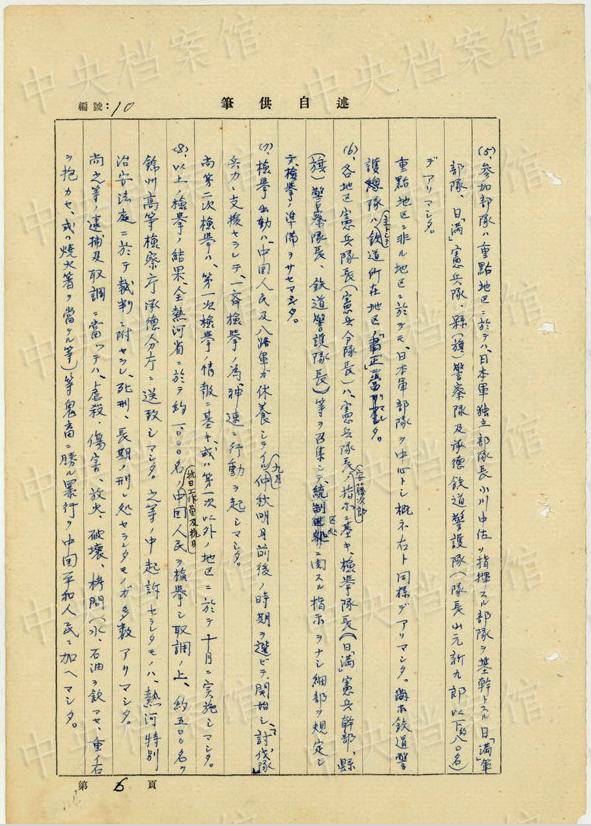 編號：10
筆供自述
(5)、参加部隊ハ重點地区ニ於テハ、日本軍独立部隊長小川中佐ノ指揮スル部隊ヲ基幹トスル日「満」軍
部隊、日「満」憲兵隊、縣(旗)警察隊及承徳鉄道警護隊(隊長山元新九郎以下約八〇名)
デアリマシタ。
重點地区ニ非ル地区ニ於テモ、日本軍部隊ヲ中心トシ概ネ右ト同様デアリマシタ。尚本鉄道警
護線隊ハ鉄道所在地区
(6)、各地区憲兵隊長(憲兵分隊長)ハ、憲兵隊長(安藤次郎)ノ指示ニ基キ、検挙隊長(日「満」憲兵幹部、縣
(旗)警察隊長、鉄道警護隊長)等ヲ召集シテ、統制区処ニ関スル指示ヲナシ細部ヲ規定シ
テ、検挙ノ準備ヲサセマシタ。
(7)、検挙出動ハ、中国人民及八路軍ガ休養シテイル(九月)仲秋明月前後ノ時期ヲ選ビテ、開始シ、「討伐隊」
兵力ニ支援セラレテ、一斉検挙ノ為、神速ニ行動ヲ起シマシタ。
尚第二次検挙ハ、第一次検挙ノ情報ニ基キ、或ハ第一次以外ノ地区ニ於テ十月ニ実施シマシタ。
(8)、以上ノ検挙ノ結果、全熱河省ニ於テ約一、〇〇〇名ノ(抗日工作員及抗日)中国人民ヲ検挙シ取調ノ上、約五〇〇名ヲ
錦州高等検察庁承徳分庁ニ送致シマシタ。之等ノ中起訴セラレタモノハ、熱河特別
治安法庭ニ於テ裁判ニ附セラレ、死刑、長期ノ刑ニ処セラレタモノガ多数アリマシタ。
尚之等ノ逮捕及取調ニ當ツテハ、虐殺、傷害、放火、破壊、拷問(水、石油ヲ飲マセ、重イ石
ヲ抱カセ、或ハ焼火箸ヲ當テル等)等鬼畜ニ勝ル暴行ヲ中国平和人民ニ加ヘマシタ。
第 6 頁
中央档案馆